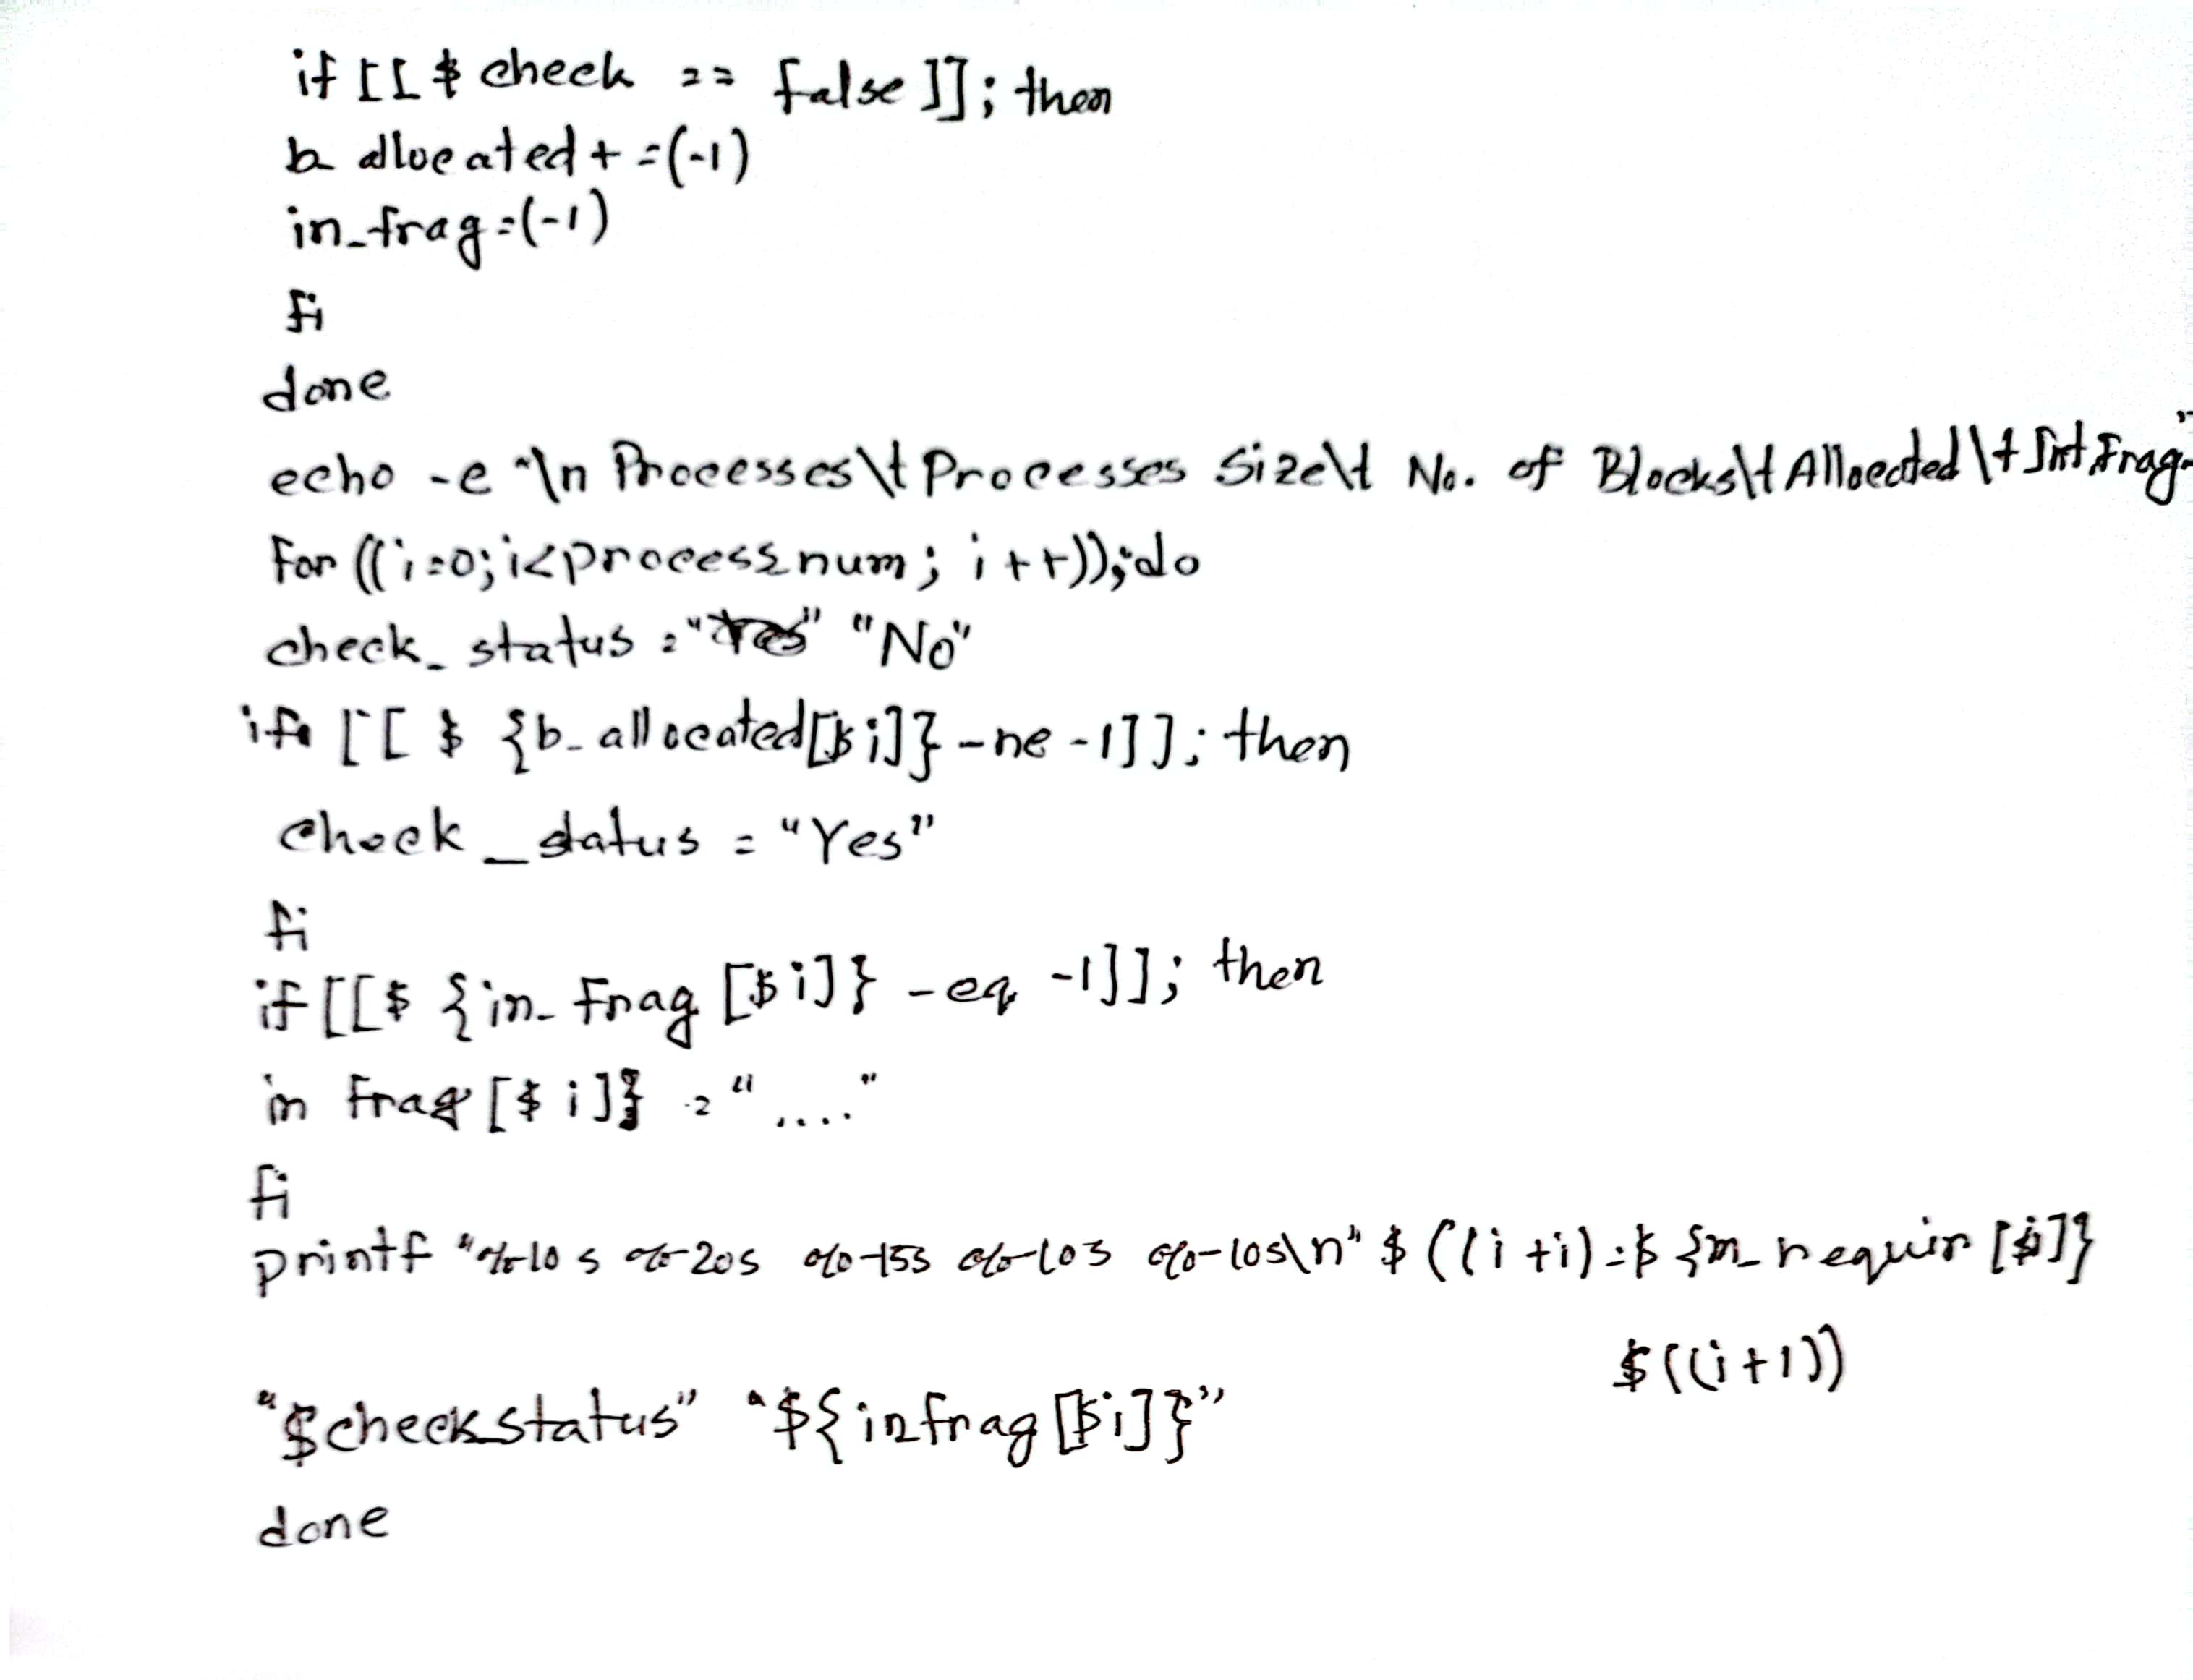 if [[ $ check == false ]]; then
b allocated + =(-1)
in_frag=(-1)
fi
done
echo -e "\n Processes\t Processes Size\t No. of Blocks\t Allocated \t Int Frag"
For ((i=0;i<processnum; i++));do
check_ status = "Yes" "No"
if [[ $ {b_allocated[$i]} -ne -1]]; then
check _ status = "Yes"
fi
if [[$ {in_ Frag [$i]} -eq -1]]; then
in Frag [$ i]} = "...."
fi
printf "%-10 s %-20s %-15s %-10s %-10s\n" $ ((i +i) =$ {m_ requir [$i]}
$((i+1))
"$checkstatus" "${infrag[$i]}"
done